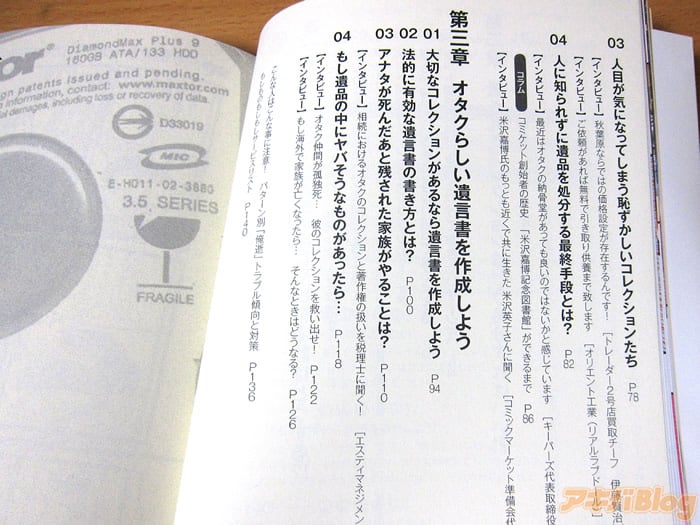 DiamondMax Plus 9
160GB ATA/133 HDD
tor
gn patents issued and pending.
e information, contact: www.maxtor.com
al damages, including loss or recovery of data.
D33019
MIC
E-H011-02-3880
3.5 SERIES
FRAGILE
03 人目が気になってしまう恥ずかしいコレクションたち P78
【インタビュー】 秋葉原ならではの価格設定が存在するんです! [トレーダー2号店買取チーフ 伊原賢治
【インタビュー】 ご依頼があれば無料で引き取り供養まで致します [オリエント工業(リアルラブドール)]
04 人に知られずに遺品を処分する最終手段とは? P82
【インタビュー】 最近はオタクの納骨堂があっても良いのではないかと感じています [キーパーズ代表取締役
コラム コミケット創始者の歴史 「米沢嘉博記念図書館」ができるまで P86
【インタビュー】 米沢嘉博氏のもっとも近くで共に生きた 米沢英子さんに聞く [コミックマーケット準備会代
第三章 オタクらしい遺言書を作成しよう
01 大切なコレクションがあるなら遺言書を作成しよう P94
02 法的に有効な遺言書の書き方とは? P100
03 アナタが死んだあと残された家族がやることは? P110
【インタビュー】 相続におけるオタクのコレクションと著作権の扱いを税理士に聞く! [エスティマネジメン
04 もし遺品の中にヤバそうなものがあったら… P118
【インタビュー】 オタク仲間が孤独死… 彼のコレクションを救い出せ! P122
【インタビュー】 もし海外で家族が亡くなったら… そんなときはどうなる? P126
こんな人はこんな事に注意! パターン別「俺遺」トラブル傾向と対策 P136
P140
アキバBlog